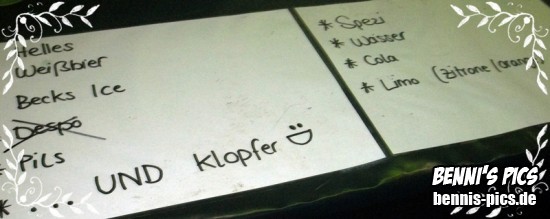 Helles
Weißbier
Becks Ice
Despo
* Pils
* ... UND Klopfer
* Spezi
* Wasser
* Cola
* Limo (Zitrone / orange)
BENNI'S PICS
bennis-pics.de